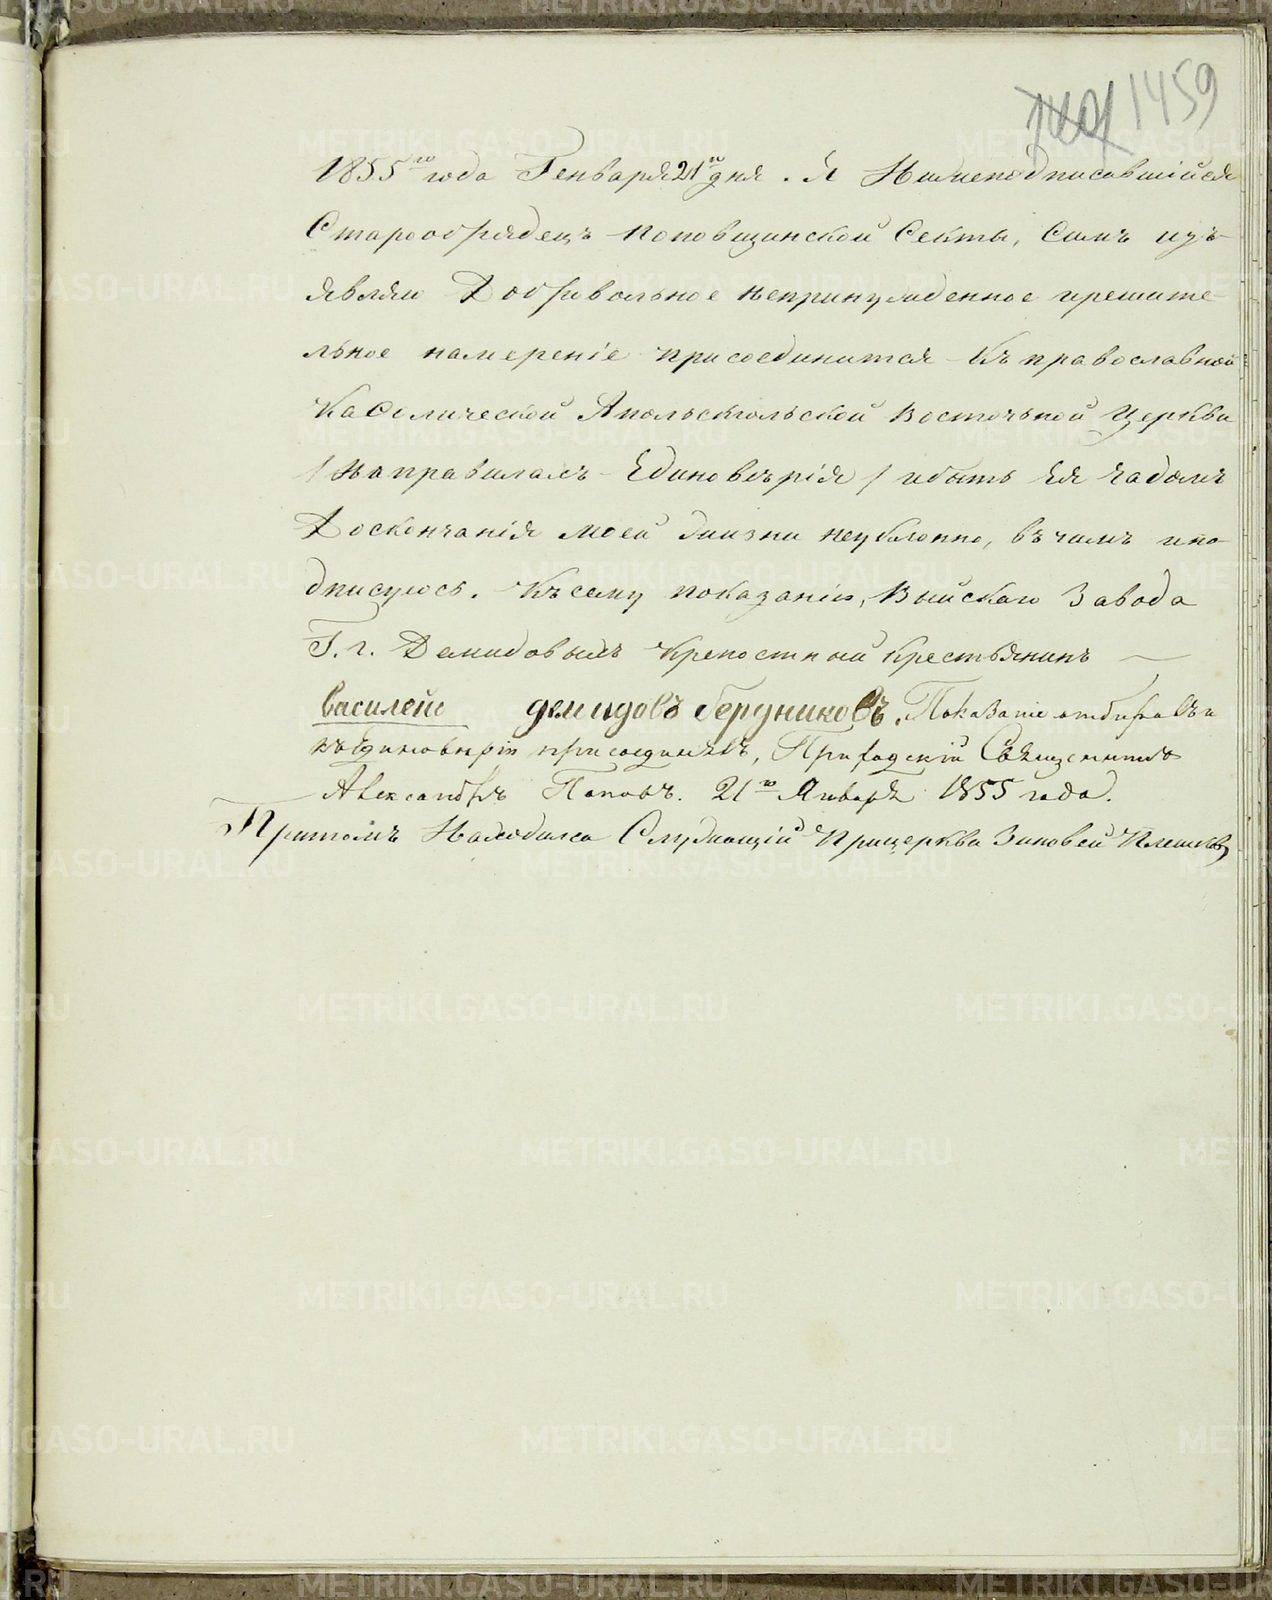 1459
1855го года Генваря 21го дня. Я Нижеподписавшийся
Старообрядецъ поповщинской Секты, Симъ изъ-
являю Добровольное непринужденное ирешите-
льное намереніе присоединится Къ православной
Каѳолической Апольскгольской Восточьной Церкви
/ на правилахъ Единоверія / ибыть Ея Чадомъ
Доскончанія моей жизни неуклонно, въ чемъ ипо-
дписуюсь. Къ сему показанію, Выйскаго Завода
Г. г. Демидовыхъ Крепостной Крестьянинъ
василей демидовъ бердниковъ. Показаніе отбиралъ и
къ Единоверію присоединялъ, Приходскій Священникъ
Александръ Поповъ. 21го Января 1855 года.
Притомъ Находился Служащій Прицеркви Зиновей Плешков